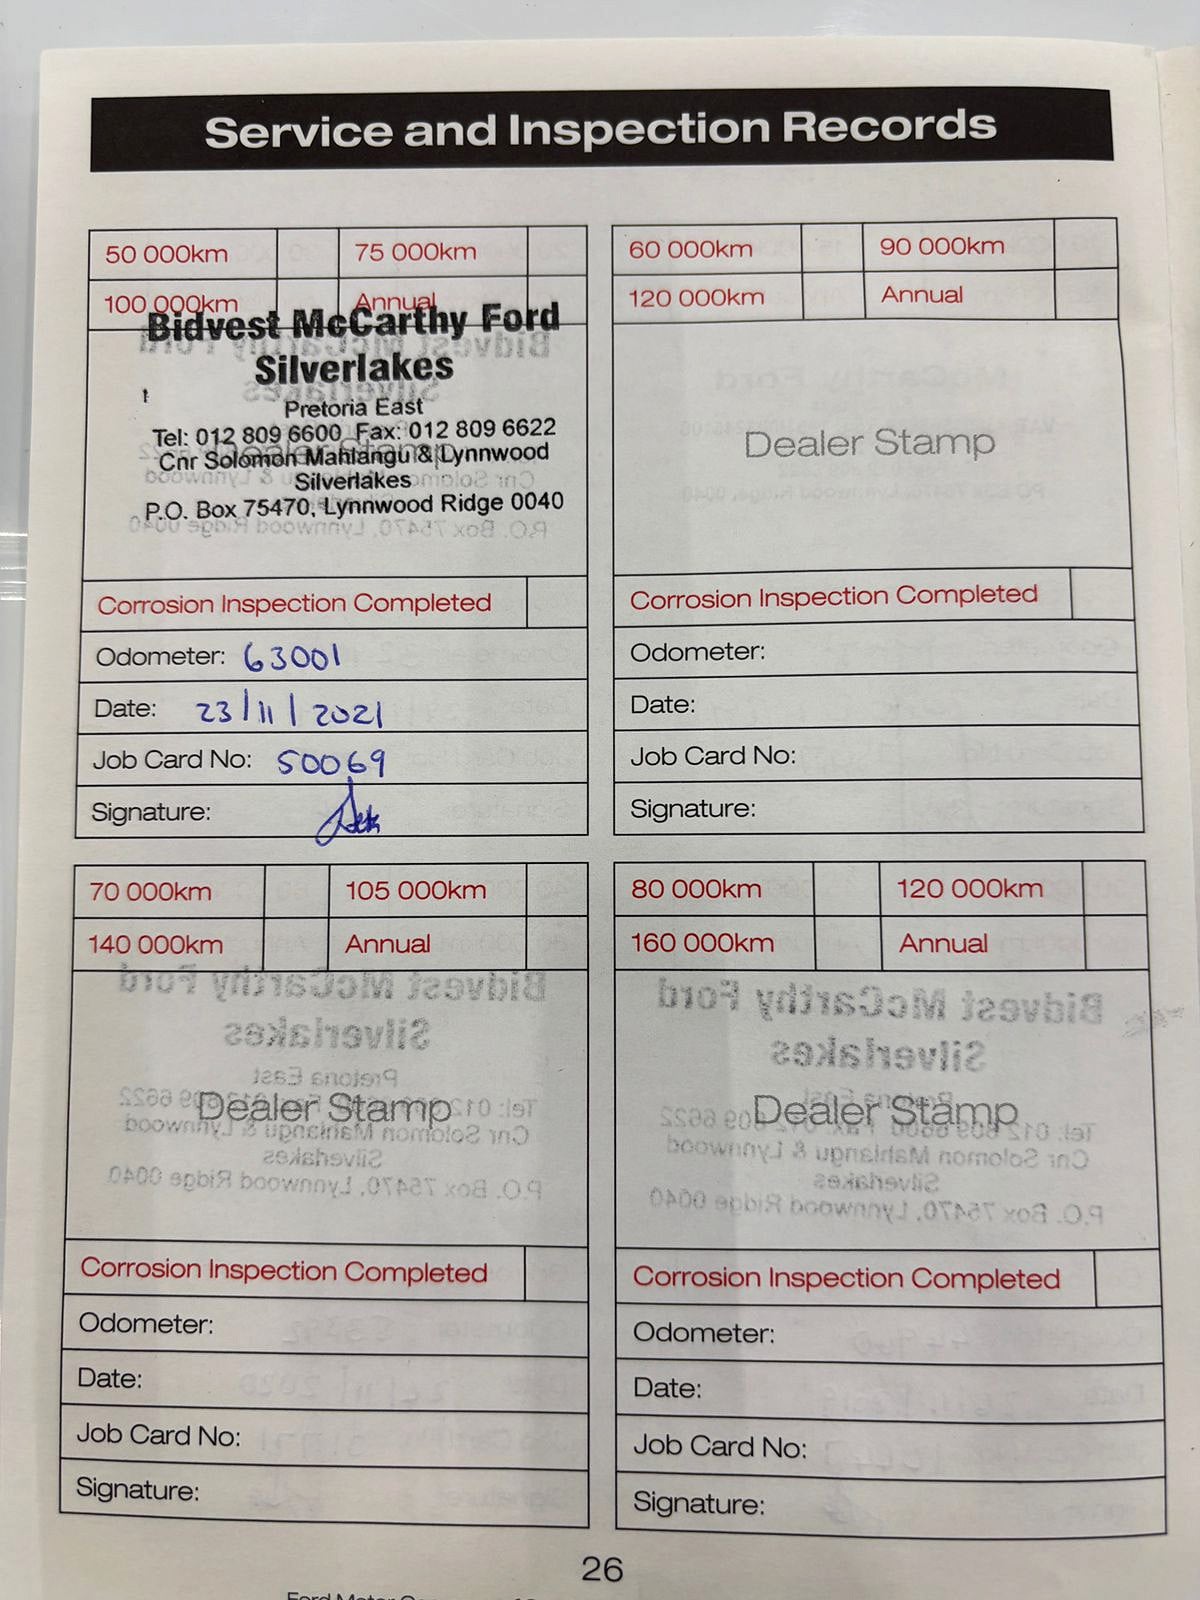 Service and Inspection Records
50 000km 75 000km
100 000km Annual
Bidvest McCarthy Ford
Silverlakes
Pretoria East
Tel: 012 809 6600 Fax: 012 809 6622
Dealer Stamp
Cnr Solomon Mahlangu & Lynnwood
Silverlakes
P.O. Box 75470, Lynnwood Ridge 0040
Corrosion Inspection Completed
Odometer: 63001
Date: 23/11/2021
Job Card No: 50069
Signature:
60 000km 90 000km
120 000km Annual
Dealer Stamp
Corrosion Inspection Completed
Odometer:
Date:
Job Card No:
Signature:
70 000km 105 000km
140 000km Annual
Dealer Stamp
Corrosion Inspection Completed
Odometer:
Date:
Job Card No:
Signature:
80 000km 120 000km
160 000km Annual
Dealer Stamp
Corrosion Inspection Completed
Odometer:
Date:
Job Card No:
Signature:
26
Ford Motor Company of